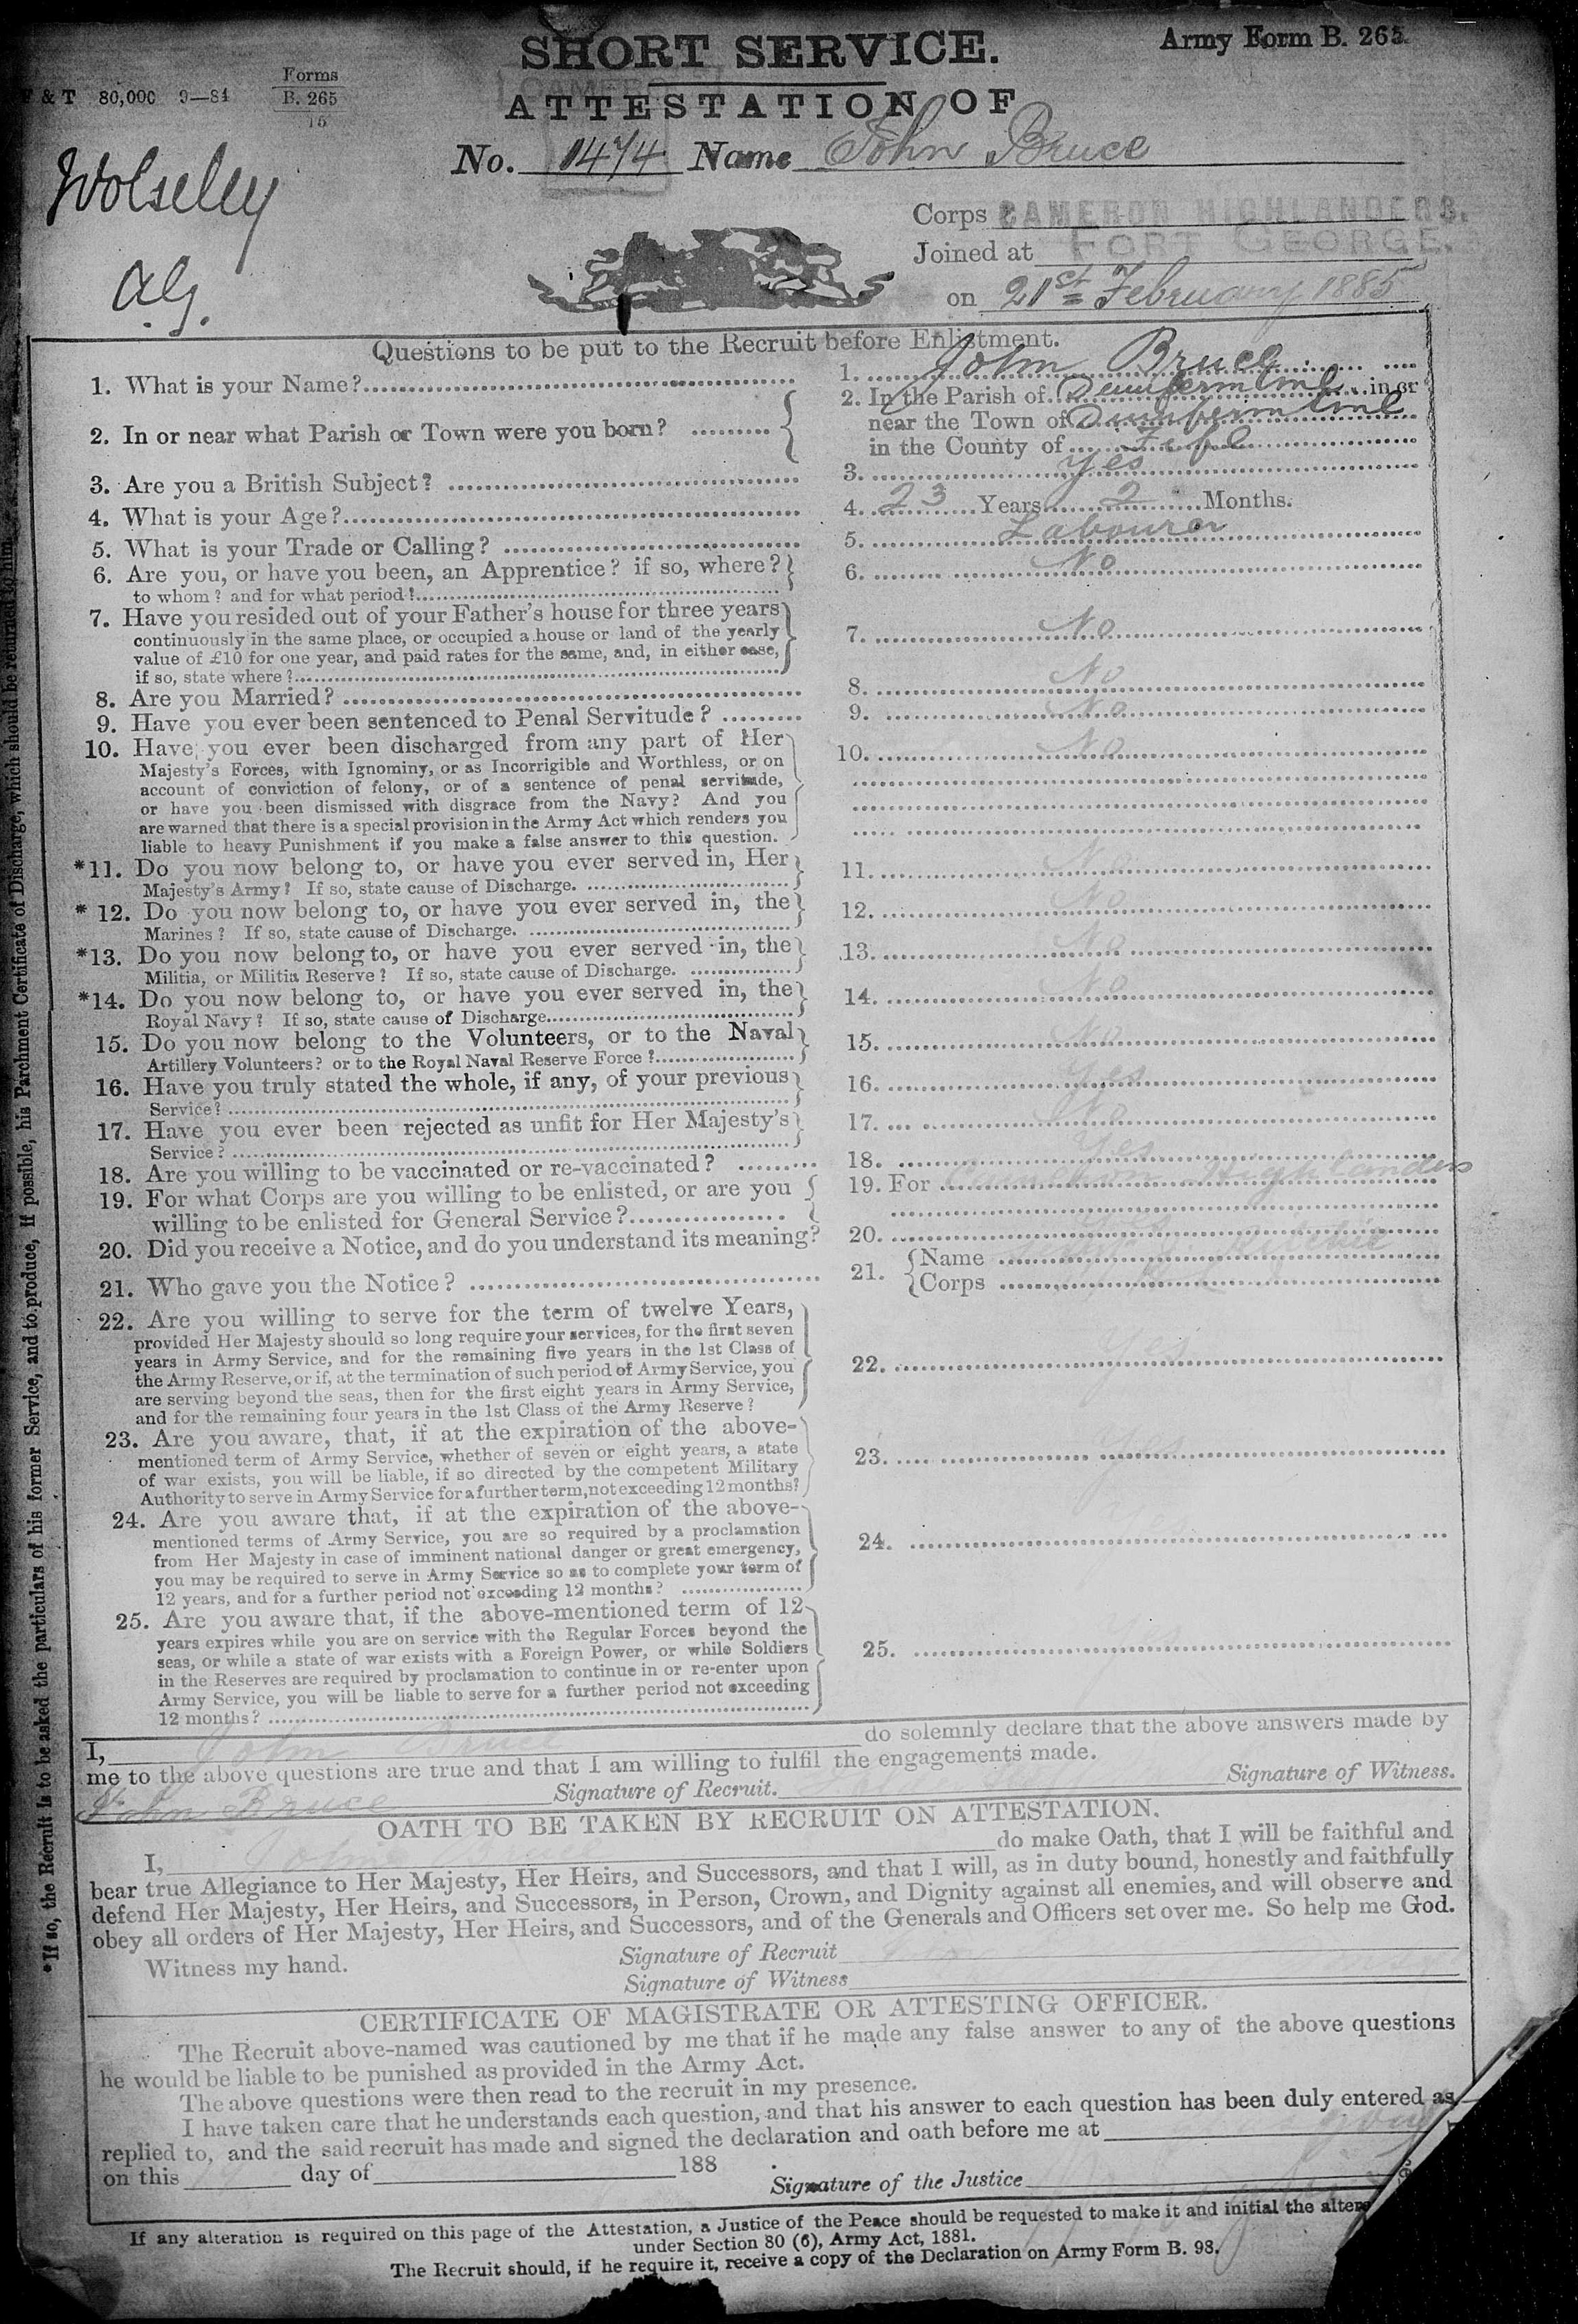 SHORT SERVICE.
Army Form B. 265.
F & T 80,000 9—84
Forms
B. 265
15
ATTESTATION OF
No. 1474 Name John Bruce
Wolseley
A.G.
Corps CAMERON HIGHLANDERS.
Joined at FORT GEORGE.
on 21st February 1885
Questions to be put to the Recruit before Enlistment.
1. What is your Name? 1. John Bruce
2. In or near what Parish or Town were you born? 2. In the Parish of Dunfermline in or
near the Town of Dunfermline
in the County of Fife
3. Are you a British Subject? 3. Yes
4. What is your Age? 4. 23 Years 2 Months.
5. What is your Trade or Calling? 5. Labourer
6. Are you, or have you been, an Apprentice? if so, where? 6. No
to whom? and for what period?
7. Have you resided out of your Father's house for three years 7. No
continuously in the same place, or occupied a house or land of the yearly
value of £10 for one year, and paid rates for the same, and, in either case,
if so, state where?
8. Are you Married? 8. No
9. Have you ever been sentenced to Penal Servitude? 9. No
10. Have you ever been discharged from any part of Her 10. No
Majesty's Forces, with Ignominy, or as Incorrigible and Worthless, or on
account of conviction of felony, or of a sentence of penal servitude,
or have you been dismissed with disgrace from the Navy? And you
are warned that there is a special provision in the Army Act which renders you
liable to heavy Punishment if you make a false answer to this question.
*11. Do you now belong to, or have you ever served in, Her 11. No
Majesty's Army? If so, state cause of Discharge.
*12. Do you now belong to, or have you ever served in, the 12. No
Marines? If so, state cause of Discharge.
*13. Do you now belong to, or have you ever served in, the 13. No
Militia, or Militia Reserve? If so, state cause of Discharge.
*14. Do you now belong to, or have you ever served in, the 14. No
Royal Navy? If so, state cause of Discharge.
15. Do you now belong to the Volunteers, or to the Naval 15. No
Artillery Volunteers? or to the Royal Naval Reserve Force?
16. Have you truly stated the whole, if any, of your previous 16. Yes
Service?
17. Have you ever been rejected as unfit for Her Majesty's 17. No
Service?
18. Are you willing to be vaccinated or re-vaccinated? 18. Yes
19. For what Corps are you willing to be enlisted, or are you 19. For Cameron Highlanders
willing to be enlisted for General Service?
20. Did you receive a Notice, and do you understand its meaning? 20. Yes
21. Who gave you the Notice? 21. Name
Corps
22. Are you willing to serve for the term of twelve Years, 22. Yes
provided Her Majesty should so long require your services, for the first seven
years in Army Service, and for the remaining five years in the 1st Class of
the Army Reserve, or if, at the termination of such period of Army Service, you
are serving beyond the seas, then for the first eight years in Army Service,
and for the remaining four years in the 1st Class of the Army Reserve?
23. Are you aware, that, if at the expiration of the above- 23. Yes
mentioned term of Army Service, whether of seven or eight years, a state
of war exists, you will be liable, if so directed by the competent Military
Authority to serve in Army Service for a further term, not exceeding 12 months?
24. Are you aware that, if at the expiration of the above- 24. Yes
mentioned terms of Army Service, you are so required by a proclamation
from Her Majesty in case of imminent national danger or great emergency,
you may be required to serve in Army Service so as to complete your term of
12 years, and for a further period not exceeding 12 months?
25. Are you aware that, if the above-mentioned term of 12 25. Yes
years expires while you are on service with the Regular Forces beyond the
seas, or while a state of war exists with a Foreign Power, or while Soldiers
in the Reserves are required by proclamation to continue in or re-enter upon
Army Service, you will be liable to serve for a further period not exceeding
12 months?
I, John Bruce do solemnly declare that the above answers made by
me to the above questions are true and that I am willing to fulfil the engagements made.
John Bruce Signature of Recruit. Signature of Witness.
OATH TO BE TAKEN BY RECRUIT ON ATTESTATION.
I, John do make Oath, that I will be faithful and
bear true Allegiance to Her Majesty, Her Heirs, and Successors, and that I will, as in duty bound, honestly and faithfully
defend Her Majesty, Her Heirs, and Successors, in Person, Crown, and Dignity against all enemies, and will observe and
obey all orders of Her Majesty, Her Heirs, and Successors, and of the Generals and Officers set over me. So help me God.
Witness my hand. Signature of Recruit
Signature of Witness
CERTIFICATE OF MAGISTRATE OR ATTESTING OFFICER.
The Recruit above-named was cautioned by me that if he made any false answer to any of the above questions
he would be liable to be punished as provided in the Army Act.
The above questions were then read to the recruit in my presence.
I have taken care that he understands each question, and that his answer to each question has been duly entered as
replied to, and the said recruit has made and signed the declaration and oath before me at
on this day of 188
Signature of the Justice
If any alteration is required on this page of the Attestation, a Justice of the Peace should be requested to make it and initial the altera
under Section 80 (6), Army Act, 1881.
The Recruit should, if he require it, receive a copy of the Declaration on Army Form B. 98.
*If so, the Recruit is to be asked the particulars of his former Service, and to produce, if possible, his Parchment Certificate of Discharge, which should be returned to him.